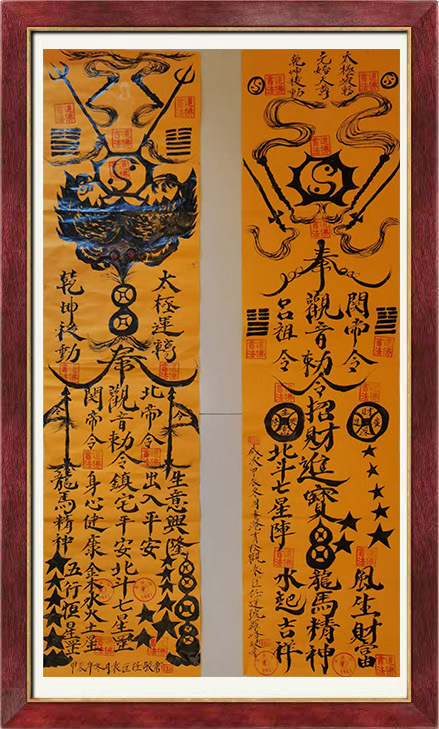 太極運轉
元始天尊
乾坤移動
關帝令
奉觀音勅令招財進寶龍馬精神
呂祖令
北斗七星陣
風生財富
水起吉祥
太極運轉
乾坤移動
生意興隆
北帝令出入平安
奉觀音勅令鎮宅平安北斗七星罡
關帝令身心健康金木水火土星
龍馬精神五行恒星罡
令
令